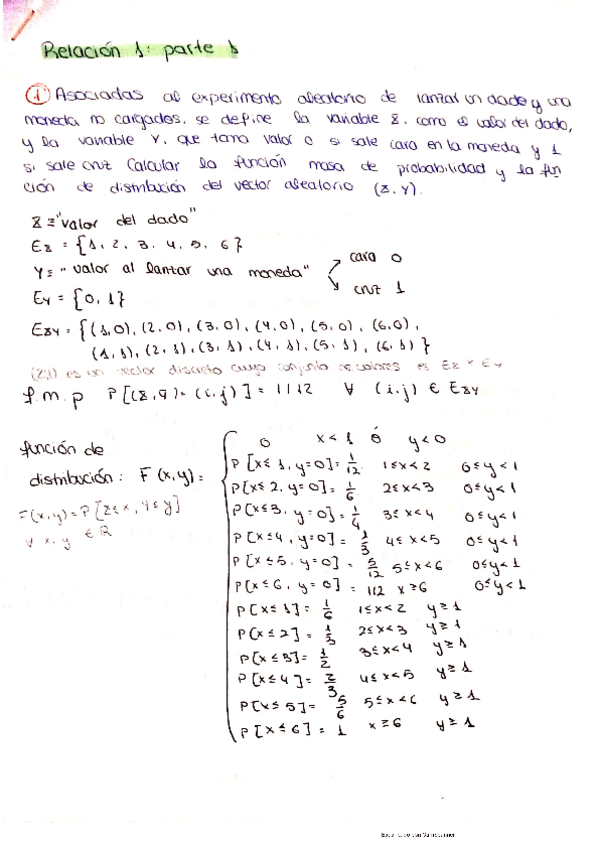 Relación 1: parte 1
① Asociadas al experimento aleatorio de lanzar un dado y una
moneda no cargados, se define la variable X, como el valor del dado,
y la variable Y, que toma valor 0 si sale cara en la moneda y 1
si sale cruz Calcular la función masa de probabilidad y la fun
ción de distribución del vector aleatorio (X,Y).
X ≡ "valor del dado"
Ex = {1, 2, 3, 4, 5, 6}
Y ≡ "valor al lanzar una moneda"
cara 0
cruz 1
Ey = {0, 1}
Exy = {(1,0), (2,0), (3,0), (4,0), (5,0), (6,0),
(1,1), (2,1), (3,1), (4,1), (5,1), (6,1)}
es un vector discreto cuyo conjunto de valores es Ex × Ey
f.m.p P[(X,Y)=(i,j)] = 1/12 ∀ (i,j) ∈ Exy
función de
distribución: F(x,y) =
F(x,y)=P[X≤x, Y≤y]
∀ x,y ∈ R
0 x<1 ó y<0
P[x≤1, y=0]= 1/12 1≤x<2 0≤y<1
P[x≤2, y=0]= 1/6 2≤x<3 0≤y<1
P[x≤3, y=0]= 1/4 3≤x<4 0≤y<1
P[x≤4, y=0]= 1/3 4≤x<5 0≤y<1
P[x≤5, y=0]= 5/12 5≤x<6 0≤y<1
P[x≤6, y=0]= 1/2 x≥6 0≤y<1
P[x≤1]= 1/6 1≤x<2 y≥1
P[x≤2]= 1/3 2≤x<3 y≥1
P[x≤3]= 1/2 3≤x<4 y≥1
P[x≤4]= 2/3 4≤x<5 y≥1
P[x≤5]= 5/6 5≤x<6 y≥1
P[x≤6]= 1 x≥6 y≥1
Escaneado con CamScanner